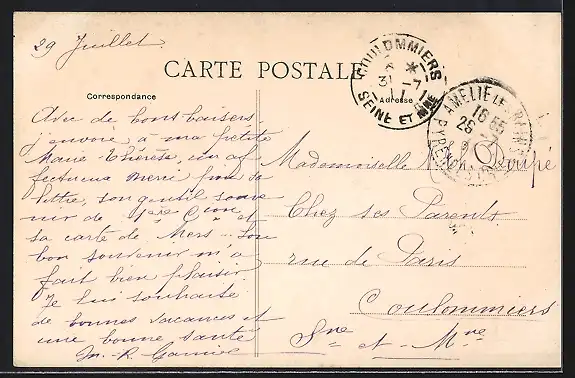 29 Juillet
CARTE POSTALE
Correspondance
Adresse
COULOMMIERS
31 -7
SEINE ET MNE
AMELIE LES BAINS
16 55
Avec de bons baisers
j'envoie à ma petite
Marie-Thérèse, un af
fectueux merci pour sa
lettre, son gentil souve
nir de 1ère Cion et
sa carte de Mers. Son
bon souvenir m'a
fait bien plaisir.
Je lui souhaite
de bonnes vacances et
une bonne santé
M. R. Garnier
Mademoiselle
Chez ses Parents
rue de Paris
Coulommiers
Sne et Mne